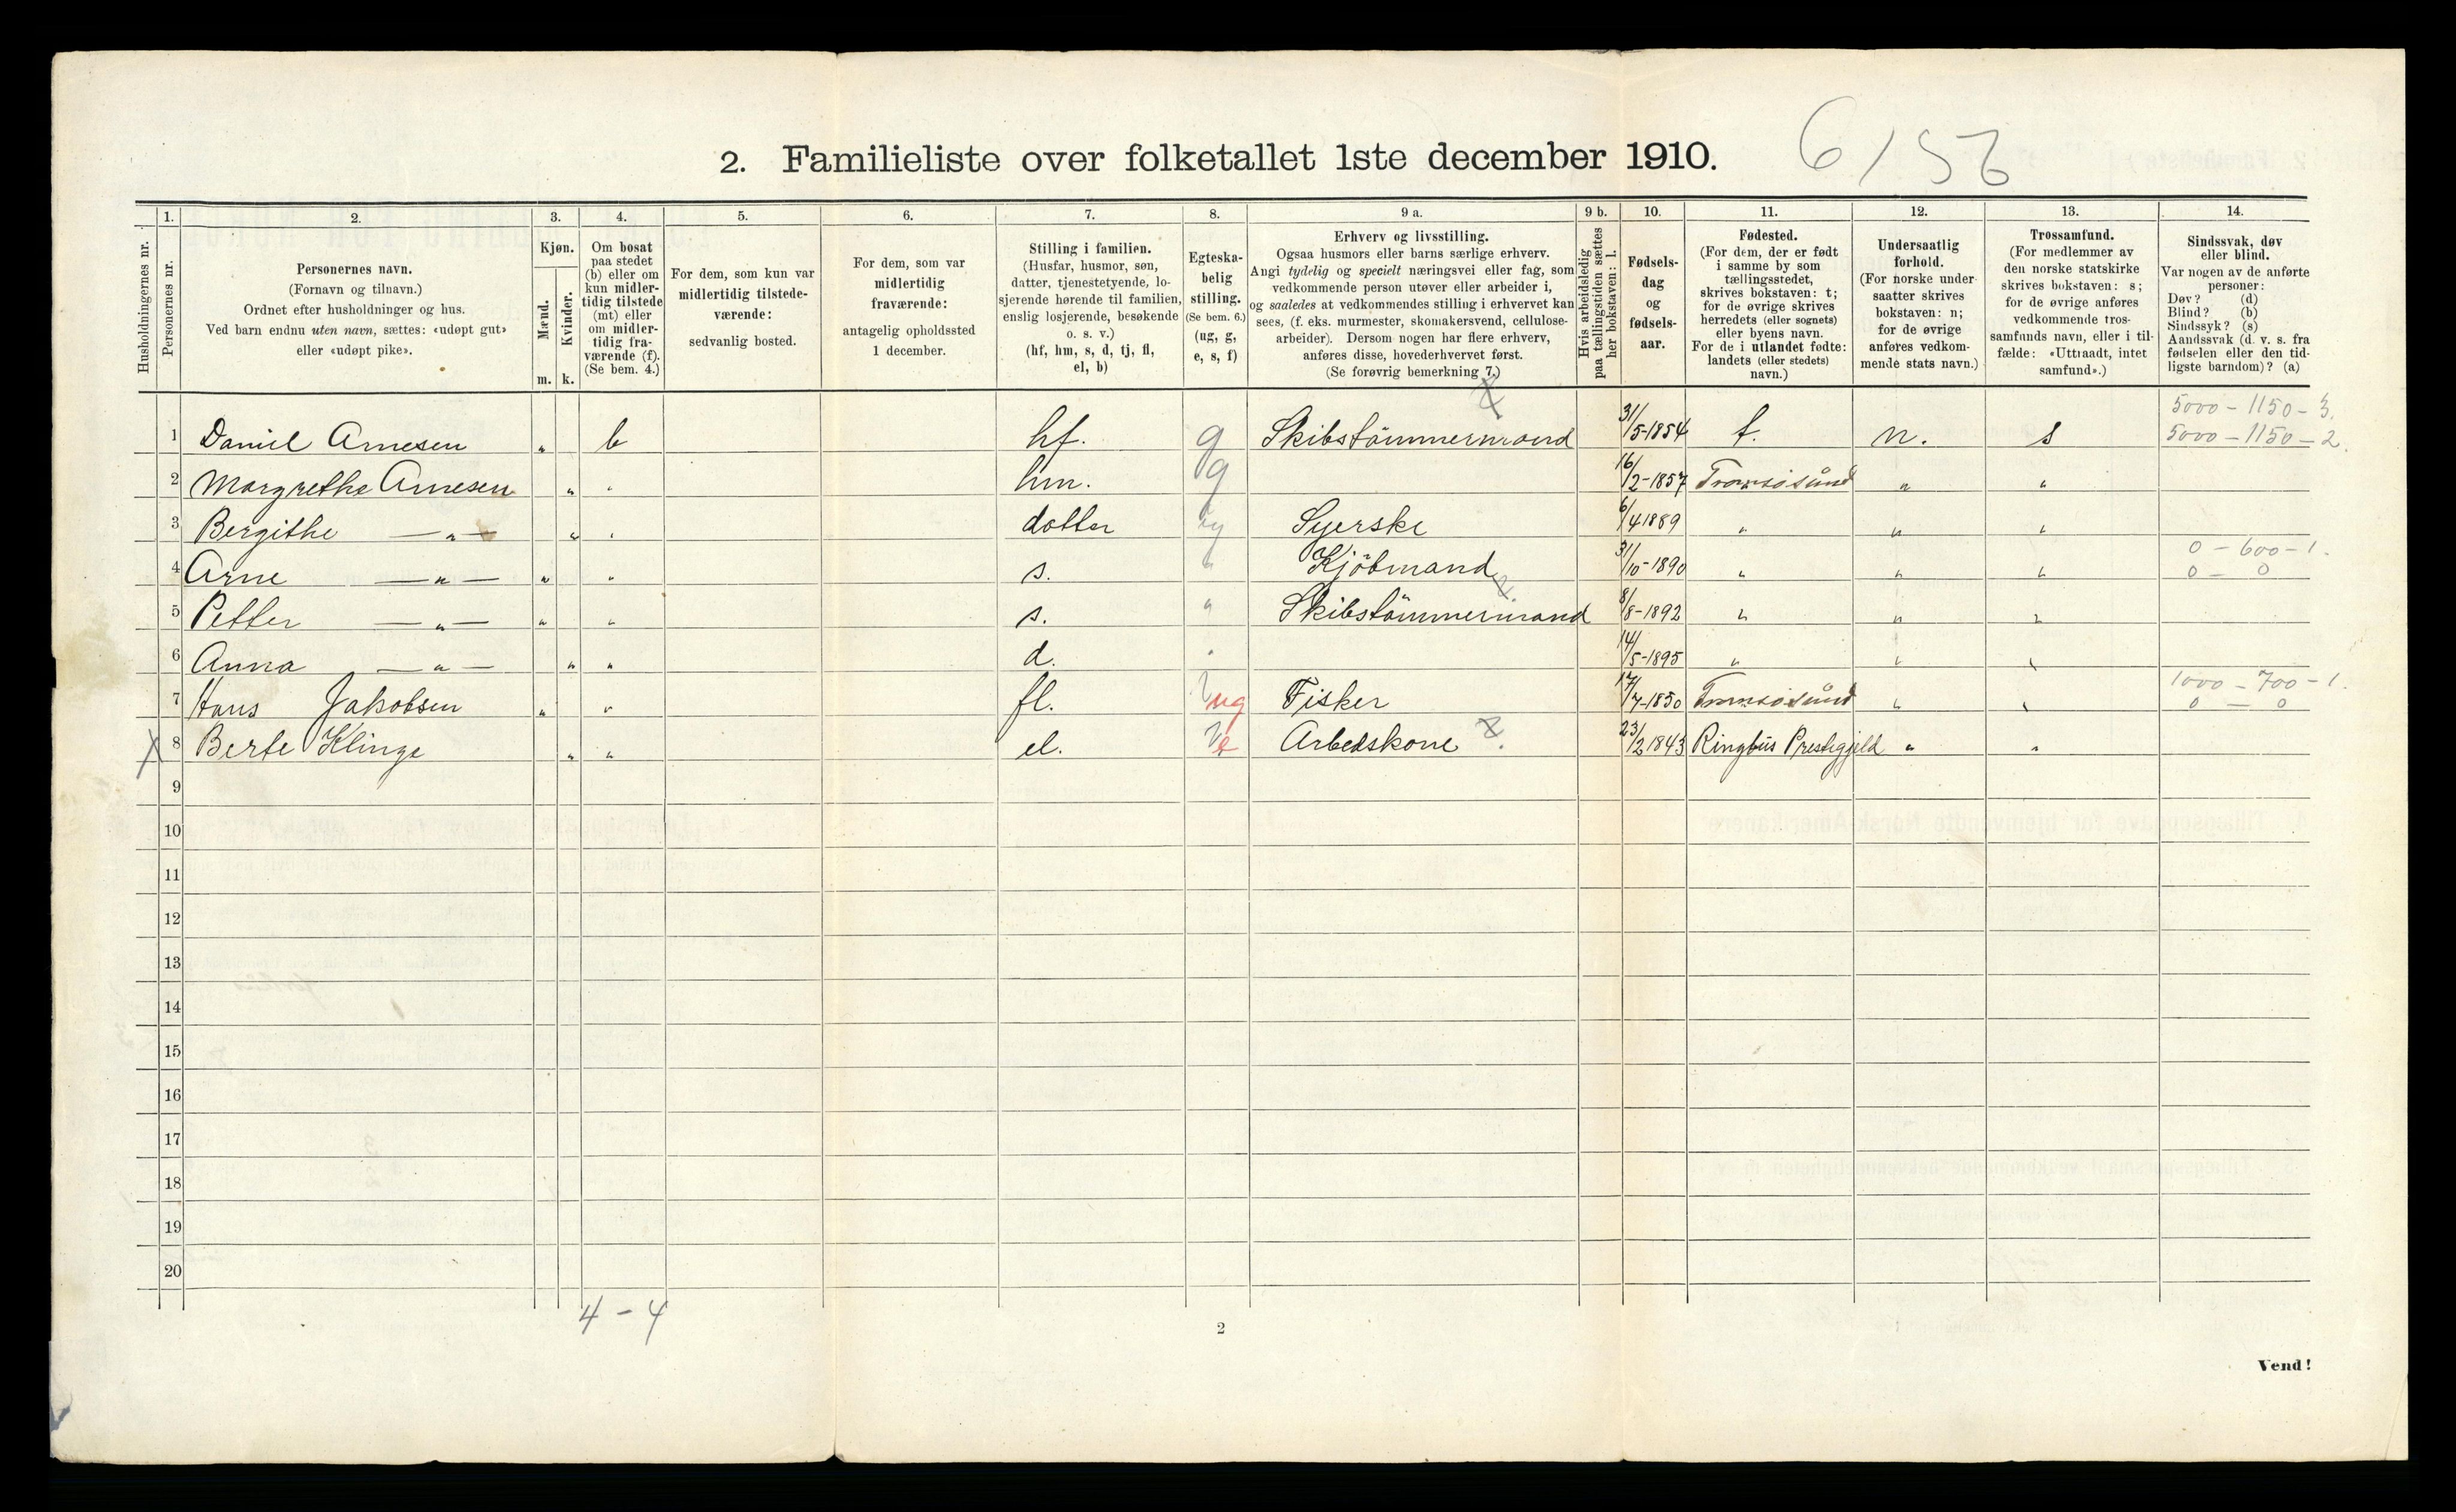 2. Familieliste over folketallet 1ste december 1910. 6/56
1. 2. 3. 4. 5. 6. 7. 8. 9 a. 9 b. 10. 11. 12. 13. 14.
Husholdningernes nr.
Personernes nr.
Personernes navn.
(Fornavn og tilnavn.)
Ordnet efter husholdninger og hus.
Ved barn endnu uten navn, sættes: «udøpt gut»
eller «udøpt pike».
Kjøn.
Mænd.
Kvinder.
m. k.
Om bosat
paa stedet
(b) eller om
kun midler-
tidig tilstede
(mt) eller
om midler-
tidig fra-
værende (f).
(Se bem. 4.)
For dem, som kun var
midlertidig tilstede-
værende:
sedvanlig bosted.
For dem, som var
midlertidig
fraværende:
antagelig opholdssted
1 december.
Stilling i familien.
(Husfar, husmor, søn,
datter, tjenestetyende, lo-
sjerende hørende til familien,
enslig losjerende, besøkende
o. s. v.)
(hf, hm, s, d, tj, fl,
el, b)
Egteska-
belig
stilling.
(Se bem. 6.)
(ug, g,
e, s, f)
Erhverv og livsstilling.
Ogsaa husmors eller barns særlige erhverv.
Angi tydelig og specielt næringsvei eller fag, som
vedkommende person utøver eller arbeider i,
og saaledes at vedkommendes stilling i erhvervet kan
sees, (f. eks. murmester, skomakersvend, cellulose-
arbeider). Dersom nogen har flere erhverv,
anføres disse, hovederhvervet først.
(Se forøvrig bemerkning 7.)
Hvis arbeidsledig
paa tællingstiden sættes
her bokstaven: l.
Fødsels-
dag
og
fødsels-
aar.
Fødested.
(For dem, der er født
i samme by som
tællingsstedet,
skrives bokstaven: t;
for de øvrige skrives
herredets (eller sognets)
eller byens navn.
For de i utlandet fødte:
landets (eller stedets)
navn.)
Undersaatlig
forhold.
(For norske under-
saatter skrives
bokstaven: n;
for de øvrige
anføres vedkom-
mende stats navn.)
Trossamfund.
(For medlemmer av
den norske statskirke
skrives bokstaven: s;
for de øvrige anføres
vedkommende tros-
samfunds navn, eller i til-
fælde: «Uttraadt, intet
samfund».)
Sindssvak, døv
eller blind.
Var nogen av de anførte
personer:
Døv? (d)
Blind? (b)
Sindssyk? (s)
Aandssvak (d. v. s. fra
fødselen eller den tid-
ligste barndom)? (a)
5000 - 1150 - 3.
1 Daniel Arnesen „ b hf. g Skibstömmermand 31/5-1854 t. n. s 5000 - 1150 - 2
2 Margrethe Arnesen „ „ hm. g 16/2-1857 Tromsösund „ „
3 Bergithe — „ — „ „ dotter ug Syerske 6/4 1889 „ „ „
0 - 600 - 1.
4 Arne — „ — „ „ s. „ Kjöbmand 31/10-1890 „ „ „ 0 - 0
5 Petter — „ — „ „ s. „ Skibstömmermand 8/8-1892 „ „ „
6 Anna — „ — „ „ d. „ 14/5-1895 „ „ „
1000 - 700 - 1.
7 Hans Jakobsen „ „ fl. ug Fisker 17/7-1850 Tromsösund „ „ 0 - 0
X 8 Berte Klinge „ „ el. e Arbedskone 23/2 1843 Ringbus Prestegjeld „ „
9
10
11
12
13
14
15
16
17
18
19
20
4 - 4
2
Vend!